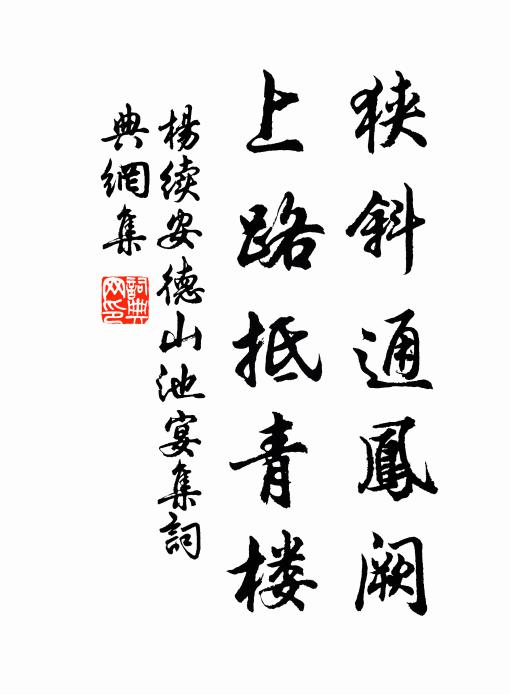 狭斜通鳳闕
上路抵青楼
楊续安德山池宴集詞
典網集
詞典網印